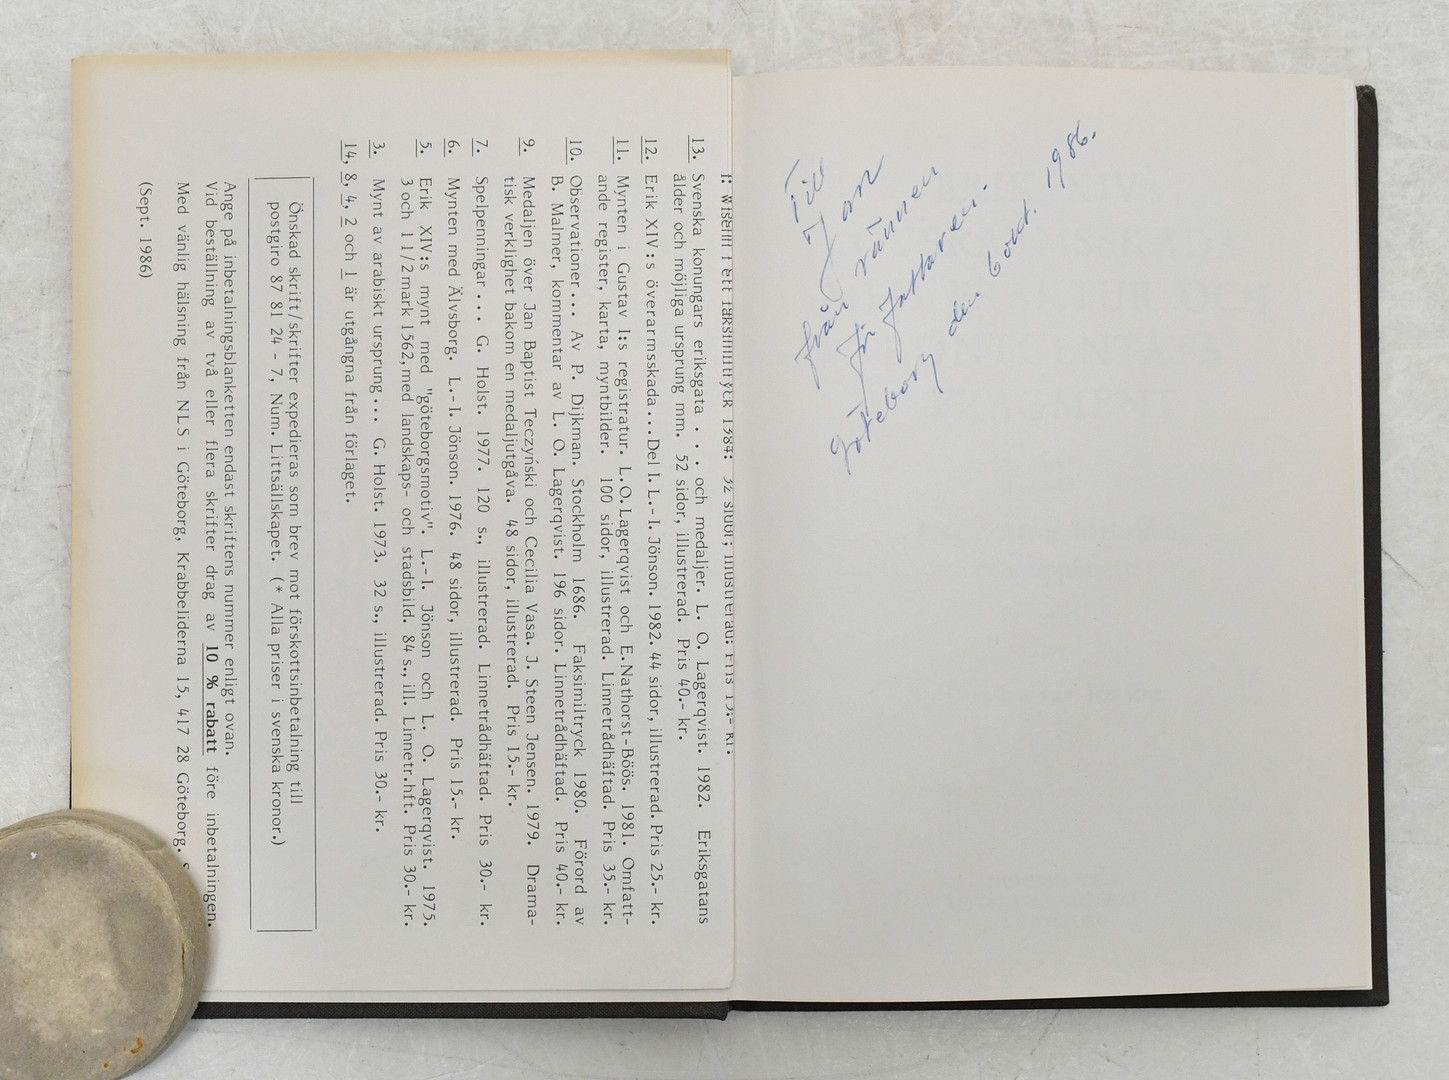 13. Svenska konungars eriksgata . . . och medaljer. L. O. Lagerqvist. 1982. Eriksgatans
ålder och möjliga ursprung mm. 52 sidor, illustrerad. Pris 40.- kr.
12. Erik XIV:s överarmsskada... Del I. L.-I. Jönson. 1982. 44 sidor, illustrerad. Pris 25.- kr.
11. Mynten i Gustav I:s registratur. L.O.Lagerqvist och E.Nathorst-Böös. 1981. Omfatt-
ande register, karta, myntbilder. 100 sidor, illustrerad. Linnetrådhäftad. Pris 35.- kr.
10. Observationer... Av P. Dijkman. Stockholm 1686. Faksimiltryck 1980. Förord av
B. Malmer, kommentar av L. O. Lagerqvist. 196 sidor. Linnetrådhäftad. Pris 40.- kr.
9. Medaljen över Jan Baptist Teczyński och Cecilia Vasa. J. Steen Jensen. 1979. Drama-
tisk verklighet bakom en medaljutgåva. 48 sidor, illustrerad. Pris 15.- kr.
7. Spelpenningar... G. Holst. 1977. 120 s., illustrerad. Linnetrådhäftad. Pris 30.- kr.
6. Mynten med Älvsborg. L.-I. Jönson. 1976. 48 sidor, illustrerad. Pris 15.- kr.
5. Erik XIV:s mynt med "göteborgsmotiv". L.-I. Jönson och L. O. Lagerqvist. 1975.
3 och 1 1/2 mark 1562, med landskaps- och stadsbild. 84 s., ill. Linnetr.hft. Pris 30.- kr.
3. Mynt av arabiskt ursprung... G. Holst. 1973. 32 s., illustrerad. Pris 30.- kr.
14, 8, 4, 2 och 1 är utgångna från förlaget.
Önskad skrift/skrifter expedieras som brev mot förskottsinbetalning till
postgiro 87 81 24 - 7, Num. Littsällskapet. (* Alla priser i svenska kronor.)
Ange på inbetalningsblanketten endast skriftens nummer enligt ovan.
Vid beställning av två eller flera skrifter drag av 10 % rabatt före inbetalningen.
Med vänlig hälsning från NLS i Göteborg, Krabbeliderna 15, 417 28 Göteborg.
(Sept. 1986)
Till
Jan
från vännen
författaren.
Göteborg den 6 okt. 1986.